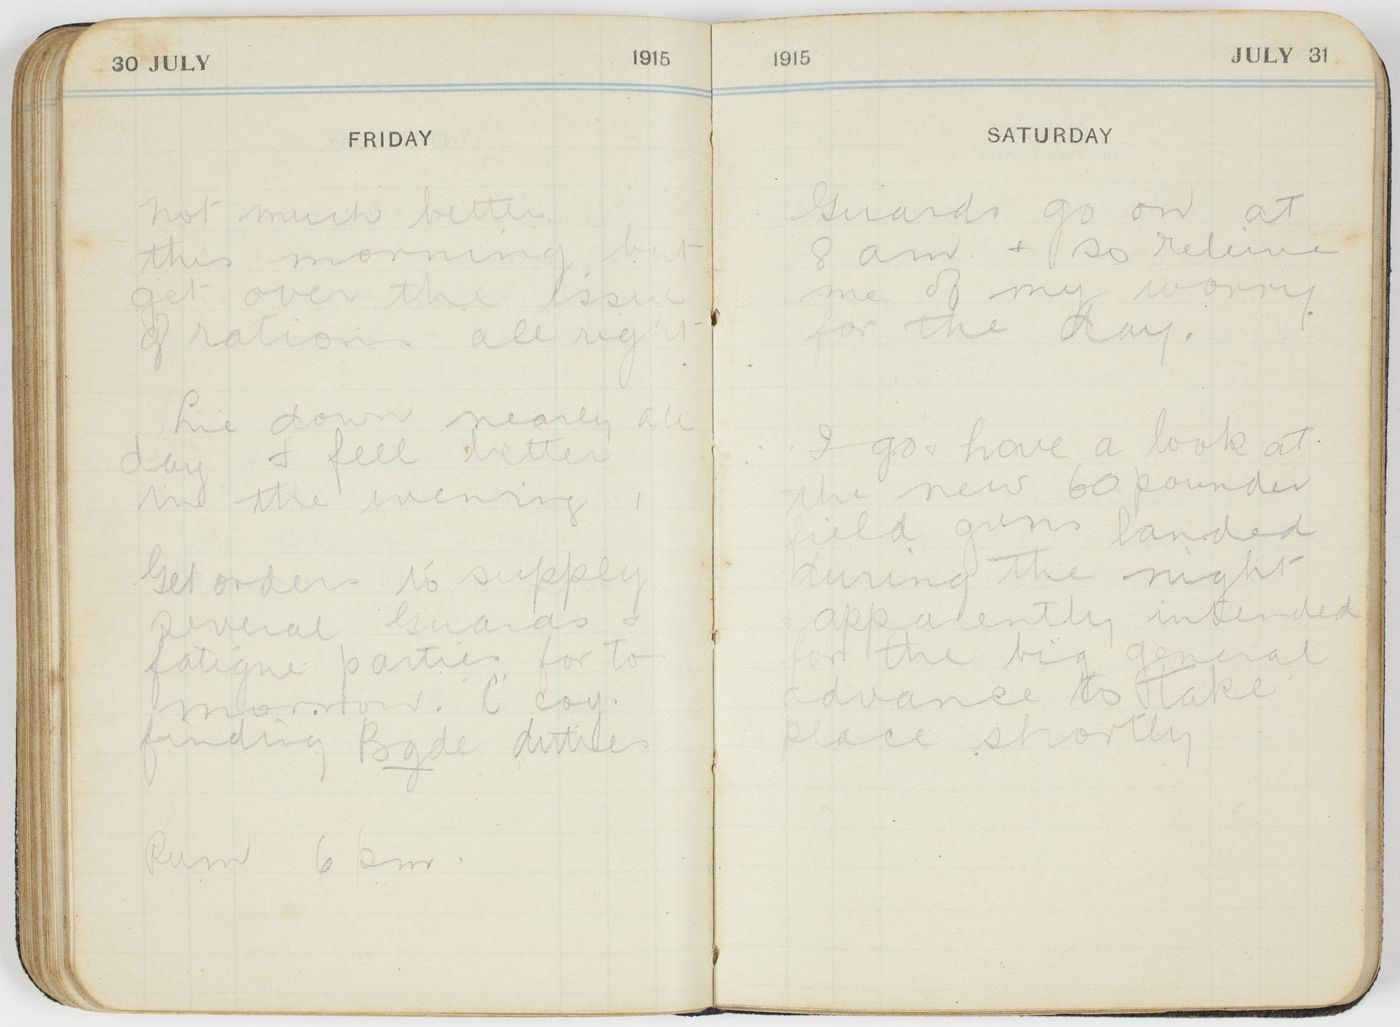 30 JULY 1915
FRIDAY
not much better
this morning but
get over the issue
of rations all right
Lie down nearly all
day & feel better
in the evening
Get orders to supply
several Guards &
fatigue parties for to
morrow. C coy.
finding Bgde duties
Rum 6 pm.
1915 JULY 31
SATURDAY
Guards go on at
8 am + so relieve
me of my worry
for the day.
I go & have a look at
the new 60 pounder
field guns landed
during the night
apparently intended
for the big general
advance to take
place shortly